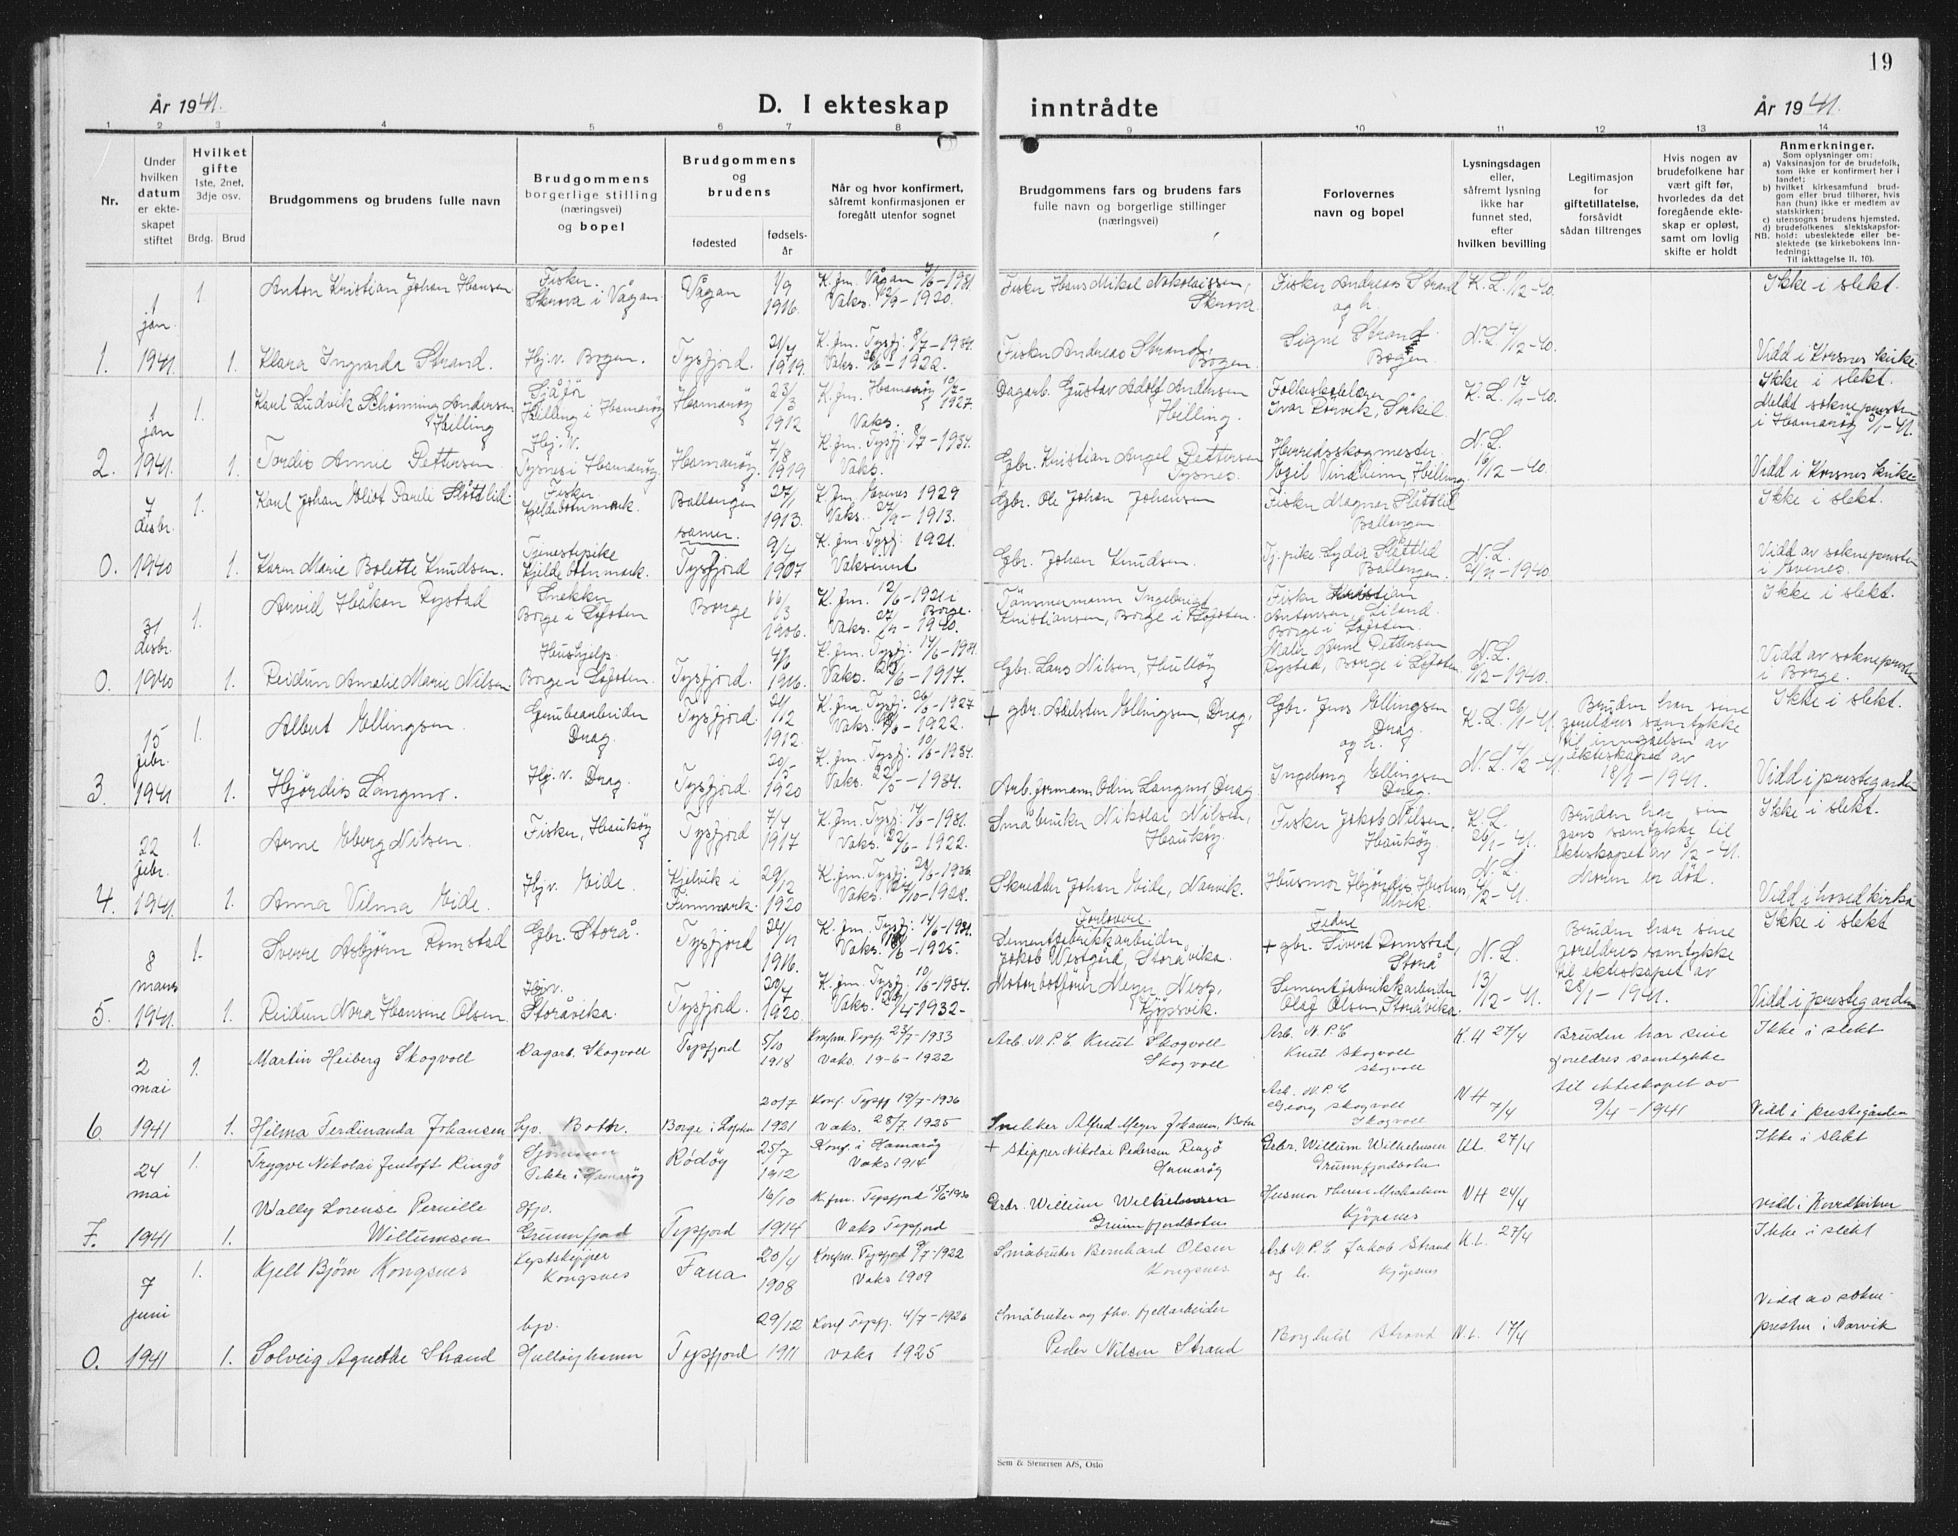 19
År 1941.
D. I ekteskap inntrådte
År 1941.
1 2 3 4 5 6 7 8 9 10 11 12 13 14
Nr.
Under hvilken datum er ekteskapet stiftet
Hvilket gifte
1ste, 2net, 3dje osv.
Brdg. Brud
Brudgommens og brudens fulle navn
Brudgommens borgerlige stilling (næringsvei) og bopel
Brudgommens og brudens
fødested
fødselsår
Når og hvor konfirmert, såfremt konfirmasjonen er foregått utenfor sognet
Brudgommens fars og brudens fars fulle navn og borgerlige stillinger (næringsvei)
Forlovernes navn og bopel
Lysningsdagen eller, såfremt lysning ikke har funnet sted, efter hvilken bevilling
Legitimasjon for giftetillatelse, forsåvidt sådan tiltrenges
Hvis nogen av brudefolkene har vært gift før, hvorledes da det foregående ekteskap er opløst, samt om lovlig skifte er holdt
Anmerkninger.
Som oplysninger om:
a) Vaksinasjon for de brudefolk, som ikke er konfirmert her i landet;
b) hvilket kirkesamfund brudgom eller brud tilhører, hvis han (hun) ikke er medlem av statskirken;
c) utensogns brudens hjemsted.
d) brudefolkenes slektskapsforhold: ubeslektede eller beslektede (se kirkebokens innledning;
NB.
Til iakttagelse II, 10).
1 jan. 1. Anton Kristian Johan Hansen Fisker. Skrova i Vågan. Vågan 1/9 1916. K. fm. Vågan 7/6-1931 Vaks. 12/9-1920. Fisker Hans Mikal Nikolaissen, Skrova. Fisker Andreas Strand og h. K. L. 1/12-40. Ikke i slekt.
1. 1941 1. Klara Ingvarda Strand. Hj.v. Bogen. Tysfjord. 21/7 1919. K. fm. Tysfj. 8/7-1934. Vaks. 26/8-1922. Fisker Andreas Strand, Bogen Signe Strand. Bogen. N. L. 4/12-40. Vidd i Korsnes kirke
1 jan 1. Karl Ludvik Schöning Andersen Helling Sjåför Helling i Hamaröy Hamaröy 23/3 1912 K. fm. Hamaröy 10/7-1927. Vaks. Dagarb. Gustav Adolf Andersen Helling. Folkeskolelærer Ivar Rörvik, Sörkil. K. L. 17/11-40. Ikke i slekt. Meldt soknepresten i Hamaröy 3/1-41.
2. 1941. 1. Tordis Annie Pettersen Hj.v. Tysnes i Hamaröy. Hamaröy 7/8 1919 K. fm. Tysfj. 8/7-1934. Vaks. Gbr. Kristian Angel Pettersen Tysnes. Herredsskogmester Egil Vindheim, Helling. N. L. 10/12-40. Vidd i Korsnes kirke
7 desbr. 1. Karl Johan Eliot Pareli Slåttlid. Fisker Kjeldebotnmark. Ballangen 27/1 1913. K. fm. Evenes 1929 Vaks. 27/9-1913. Gbr. Ole Johan Johansen Fisker Magnar Slåttlid Ballangen Ikke i slekt.
samer.
0. 1940 1. Karen Marie Bolette Knudsen. Tjenestepike Kjeldebotnmark. Tysfjord 9/4 1907 K. fm. Tysfj. 1921. Vaksinert Gbr. Johan Knudsen. Tj. pike Lydia Slåttlid Ballangen. N. L. 21/11-1940. Vidd av soknepresten i Evenes.
31 desbr. 1. Arvid Håkon Rystad Snekker Borge i Lofoten Borge 16/3 1906. K. fm. 12/6-1921 i Borge. Vaks. 27/11-1940. Tömmermann Ingebrigt Kristiansen, Borge i Lofoten. Fisker Kristian Antonsen, Liland. Borge i Lofoten. Ikke i slekt.
0. 1940 1. Reidun Amalie Marie Nilsen Hushjelp. Borge i Lofoten. Tysfjord. 4/6 1916. K. fm. Tysfj. 14/6-1931. Vaks. 20/6-1917. Gbr. Lars Nilsen, Hulløy Pettersen Rystad, Borge i Lofoten. N. L. 6/12-1940. Vidd av soknepresten i Borge.
15 febr. 1. Albert Ellingsen Grubearbeider Drag. Tysfjord. 21/12 1912. K. fm. Tysfj. 26/6-1927 Vaks. 18/6-1922. + gbr. Adelsten Ellingsen, Drag. Gbr. Jens Ellingsen Drag. og h. K. L. 26/1-41. Bruden har sine foreldres samtykke til inngåelsen av ekteskapet av 18/1-1941. Ikke i slekt.
3. 1941 1. Hjördis Langmo. Hj.v. Drag. Tysfjord. 20/5 1920 K. fm. Tysfj. 10/6-1934. Vaks. 22/5-1934. Arb. formann Odin Langmo, Drag Ingeborg Ellingsen Drag. N. L. 1/2-41. Vidd i prestegarden
22 febr. 1. Arne Eberg Nilsen. Fisker, Hauköy Tysfjord 7/4 1917 K. fm. Tysfj. 14/6-1931. Vaks. 22/6-1922. Småbruker Nikolai Nilsen, Hauköy. Fisker Jakob Nilsen. Hauköy. K. L. 26/1-41. Bruden har sin fars samtykke til ekteskapet av 3/2-41. Moren er död. Ikke i slekt.
4. 1941. 1. Anna Vilma Eide. Hj.v. Eide. Kjelvik i Finnmark. 29/12 1920 K. fm. Tysfj. 28/6-1936. Vaks. 27/10-1928. Skredder Johan Eide, Narvik. Husmor Hjördis Ulvik. N. L. 4/2-41. Vidd i hovedkirka
8 mars 1. Sverre Asbjörn Romstad Gbr. Storå. Tysfjord 24/11 1916. K. fm. Tysfj. 14/6-1931. Vaks. 18/6-1925. Forlovere. Sementfabrikkarbeider Jakob Westgård, Storåvika. Fedre + gbr. Sivert Romstad, Storå N. L. Bruden har sine foreldres samtykke til ekteskapet av 28/1-1941. Ikke i slekt
5. 1941. 1. Reidun Nora Hansine Olsen. Hj.v. Storåvika. Tysfjord. 20/7 1920 K. fm. Tysfj. 10/6-1934. Vaks. 26/5-1932- Motorbotförer Meyer Ness, Kjöpsvik. Sementfabrikkarbeider Olaf Olsen, Storåvika. 13/12-41. Vidd i prestegarden
2 mai 1. Martin Heiberg Skogvoll Dagarb. Skogvoll Tysfjord 5/10 1918 Konfm. Tysfj 23/7-1933 Vaks 19-6-1922 Arb. N.P.C. Knut Skogvoll Skogvoll Arb. N.P.C Knut Skogvoll Skogvoll K. H 27/4 Bruden har sine foreldres samtykke til ekteskapet av 9/4-1941 Ikke i slekt
6. 1941 1. Hilma Ferdinanda Johansen hjv. Botn. Borge i Lofoten 20/7 1921 Konf. Tysfj 19/7-1936 Vaks. 28/7 1925 Snekker Alfred Meyer Johansen, Botn Arb. N.P.C Georg Skogvoll Skogvoll N H 7/4 Vidd i prestegården
24 mai 1. Trygve Nikolai Jentoft Ringø Sjömann i Hamaröy Rödöy 25/7 1912 Konf. i Hamaröy Vaks 1914 + Skipper Nikolai Pedersen Ringø Hamarøy Grbr. Willum Wilhelmsen Grunnfjordbotn Kl. 27/4 Ikke i slekt
7. 1941 1. Wally Lorense Pernille Willumsen Hjv. Grunnfjord Tysfjord 16/10 1914 Konfm. Tysfjord 15/6-1930 Vaks Tysfjord Grbr. Willum Wilhelmsen Grunnfjordbotn Husmor Therese Michaelsen Kjöpsnes N H 24/4 Vidd i Hovedkirken
7 juni 1. Kjell Bjørn Kongsnes Kystskipper Kongsnes Fana 20/4 1908 Konfm. Tysfjord 9/7-1922 Vaks 1909 Småbruker Bernhard Olsen Kongsnes Arb N.P.C Jakob Strand og h. Kjøpsnes K. L. 27/4 Ikke i slekt
0. 1941 1. Solveig Agnethe Strand hjv. Hulløyhamn Tysfjord 29/12 1911 Konf Tysfj. 4/7-1926 Vaks 1925 Småbruker og fhv. fjellarbeider Peder Nilsen Strand Borghild Strand N. L. 17/4 Vidd av soknepresten i Narvik
Sem & Stenersen A/S, Oslo